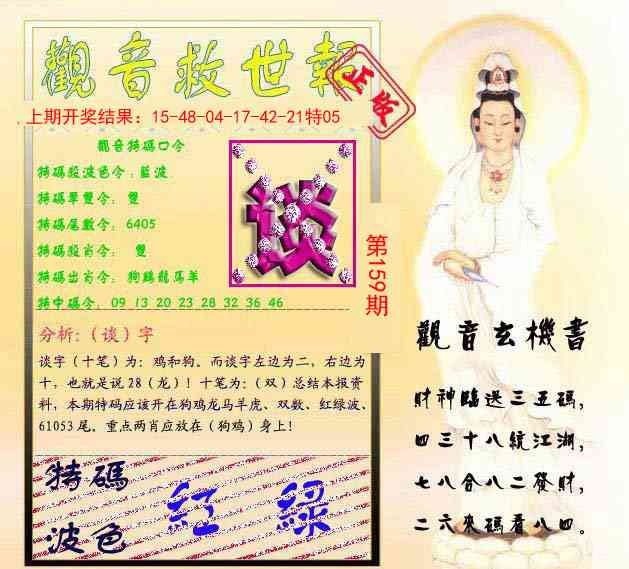 觀音救世報
正版
上期开奖结果：15-48-04-17-42-21特05
觀音特碼口令
特碼殺波色令：藍波
特碼單雙令： 雙
特碼尾數令： 6405
特碼殺肖令： 雙
特碼出肖令： 狗鷄龍馬羊
特中碼令： 09 13 20 23 28 32 36 46
谈
第159期
分析:（谈）字
谈字（十笔）为：鸡和狗、而谈字左边为二，右边为
十，也就是说 28（龙）！十笔为：（双）总结本报资
料，本期特码应该开在狗鸡龙马羊虎、双数、红绿波、
61053 尾。重点两肖应放在（狗鸡）身上！
特碼
波色
紅 綠
觀音玄機書
財神臨送三五碼，
四三十八繞江湖，
七八合八二發財，
二六來碼看八四。